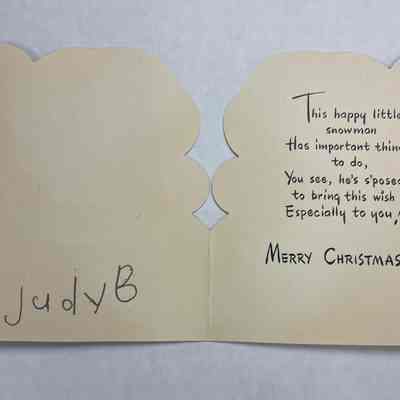 This happy little
snowman
Has important thing
to do,
You see, he's s'posed
to bring this wish
Especially to you,
MERRY CHRISTMAS
Judy B